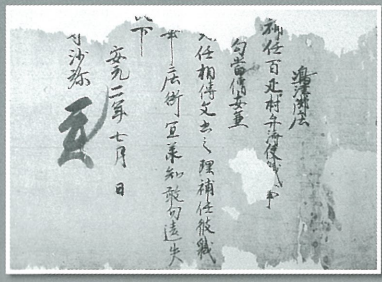 嶋津御庄
補任百疋村弁済使職事
勾當僧安兼
人任相傳文書之理補任彼職
畢庄衙宜承知敢勿違失
以下
安元二年七月 日
沙弥